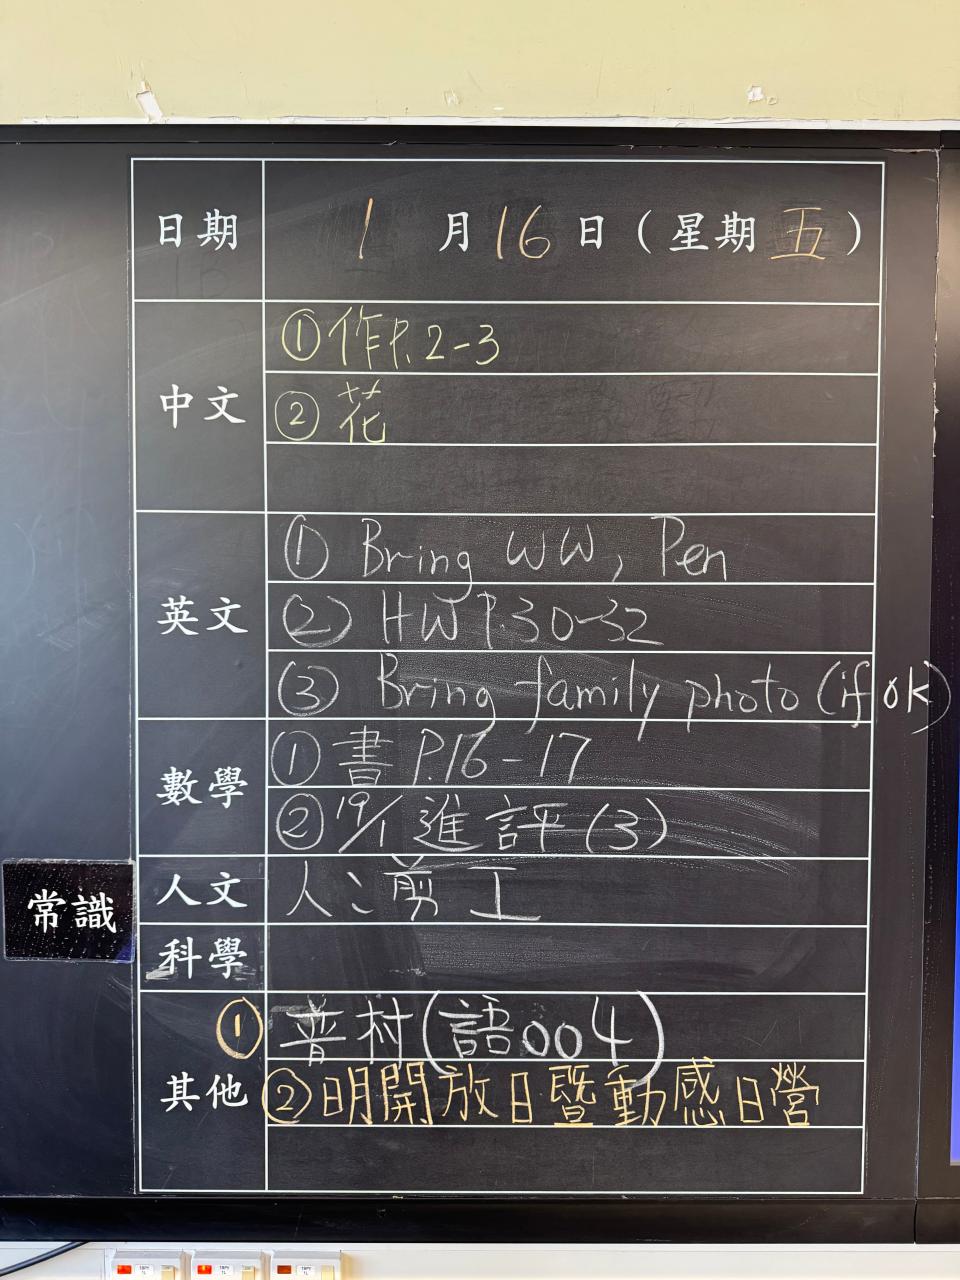 日期 1 月 16 日 ( 星期 五 )
中文
① 作P.2-3
② 花
英文
① Bring WW, Pen
② HW P.30-32
③ Bring family photo (if ok)
數學
① 書 P.16-17
② 19/1 進評(3)
人文 人: 剪工
常識
科學
其他
① 普村(語004)
② 明開放日暨動感日營